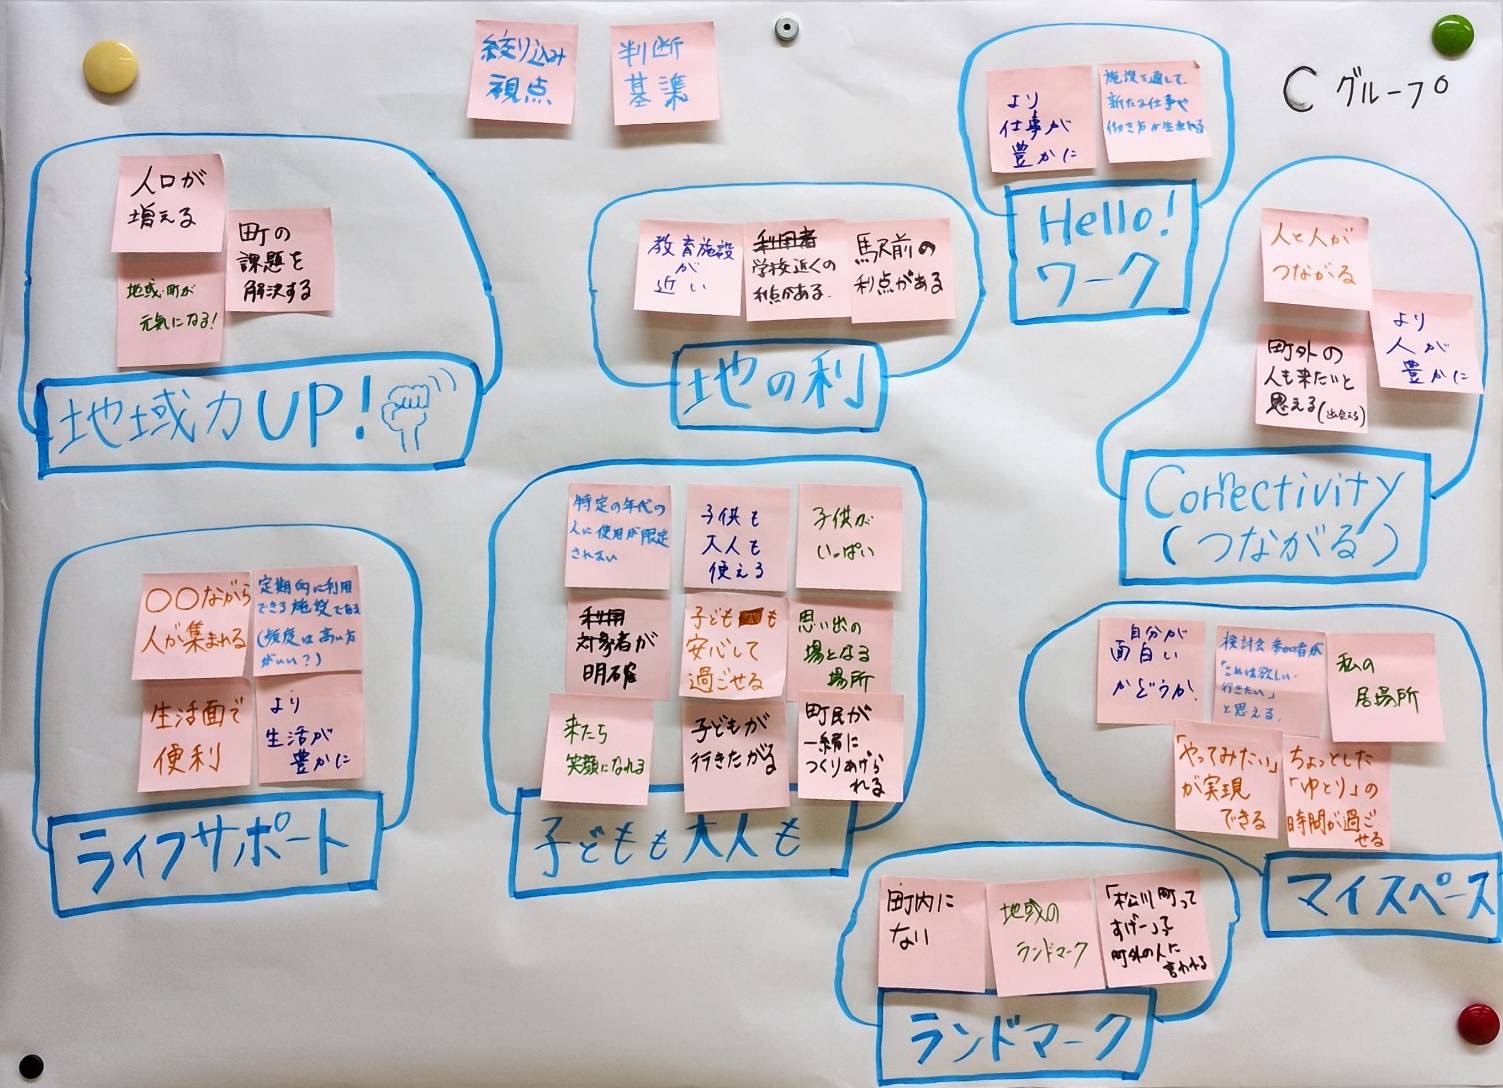 絞り込み
視点
判断
基準
Cグループ
人口が
増える
町の
課題を
解決する
地域・町が
元気になる!
地域力UP!
教育施設
が
近い
利用者
学校近くの
利点がある.
駅前の
利点がある
地の利
より
仕事が
豊かに
施設を通して、
新たな仕事や
働き方が生まれる
Hello!
ワーク
人と人が
つながる
より
人が
豊かに
町外の
人も来たいと
思える(出会える)
Connectivity
(つながる)
〇〇ながら
人が集まれる
定期的に利用
できる施設である
(頻度は高い方
がいい?)
生活面で
便利
より
生活が
豊かに
ライフサポート
特定の年代の
人に使用が限定
されない
子供も
大人も
使える
子供が
いっぱい
利用
対象者が
明確
子ども も
安心して
過ごせる
思い出の
場となる
場所
来たら
笑顔になれる
子どもが
行きたがる
町民が
一緒に
つくりあげら
れる
子どもも大人も
自分が
面白い
かどうか.
検討会参加者が
「これは欲しい
行きたい」
と思える.
私の
居場所
「やってみたい」
が実現
できる
ちょっとした
「ゆとり」の
時間が過ごせる
マイスペース
町内に
ない
地域の
ランドマーク
「松川町って
すげー」と
町外の人に
言われる
ランドマーク